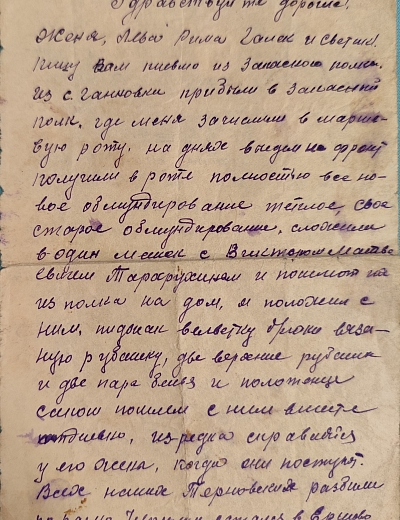 Здравствуйте дорогие!
Женя, Лева Рима Галек и Светик!
Пишу Вам письмо из Запасного полка.
Из с. Ганновки прибыли в Запасный
полк, где меня зачислили в марше-
вую роту, на днях выедем на фронт
получили в роте полностью все но-
вое обмундирование тёплое, свое
старое обмундирование, сложили
в один мешок с Виктором Матве
евичем Тарарухиным и пошлют их
из полка на дом, я положил с
ним, пиджак вельветку брюки вяза-
ную рубашку, две верхние рубашки
и две пара белья и полотенце
сапоги пошлем с ним вместе
отдельно, изредка справляйся
у его жены, когда они поступят.
Всех наших Терновских разбили